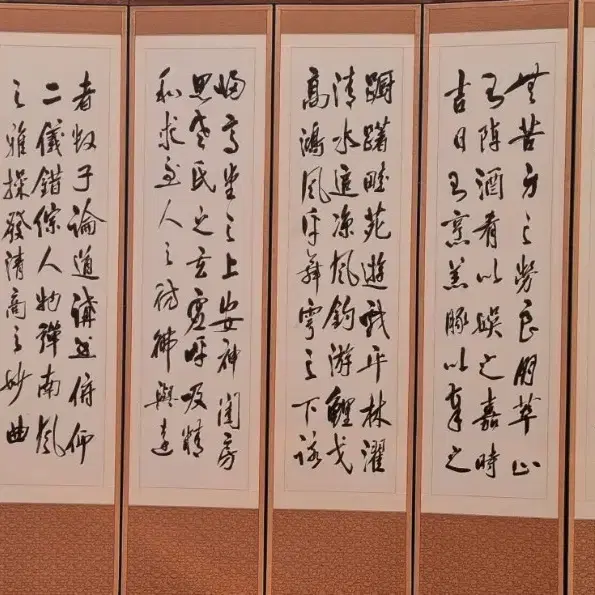 無苦身之勞良朋萃止
則陳酒肴以娛之嘉時
吉日則烹羔豚以奉之
蹰躇畦苑遊戲平林濯
清水追涼風釣游鯉弋
高鴻風於舞雩之下詠
歸高堂之上安神閨房
思老氏之玄虛呼吸精
和求至人之彷彿與達
者數子論道講書俯仰
二儀錯綜人物彈南風
之雅操發清商之妙曲